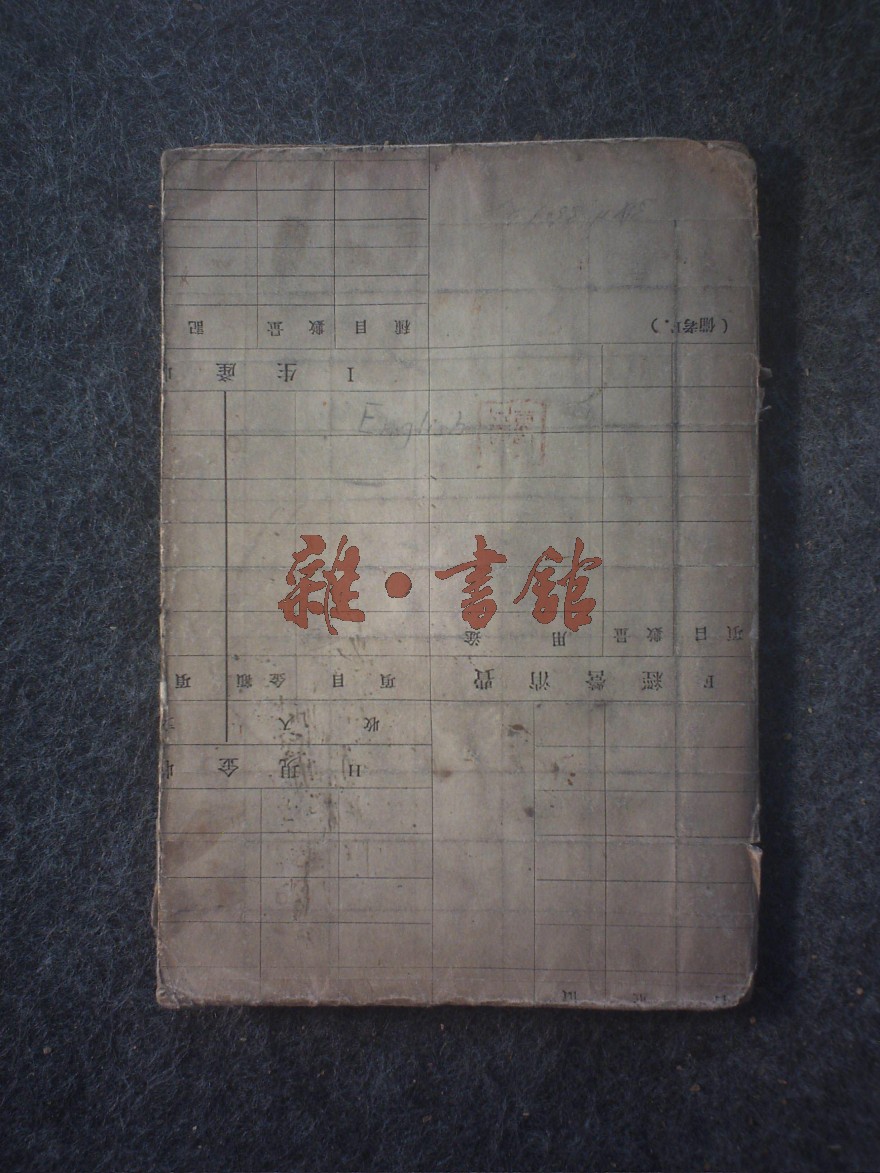 (備考F.)
種目 數量 記
I 生產
English
雜·書館
項目 數量 用途
F 經營消費
項目 金額 項
收入
H 現金收